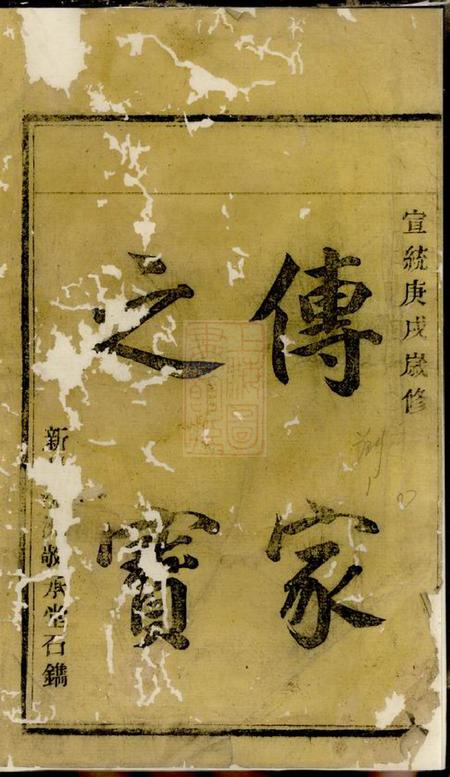 宣統庚戌歲修
傳家
之寳
新敬承堂石鐫